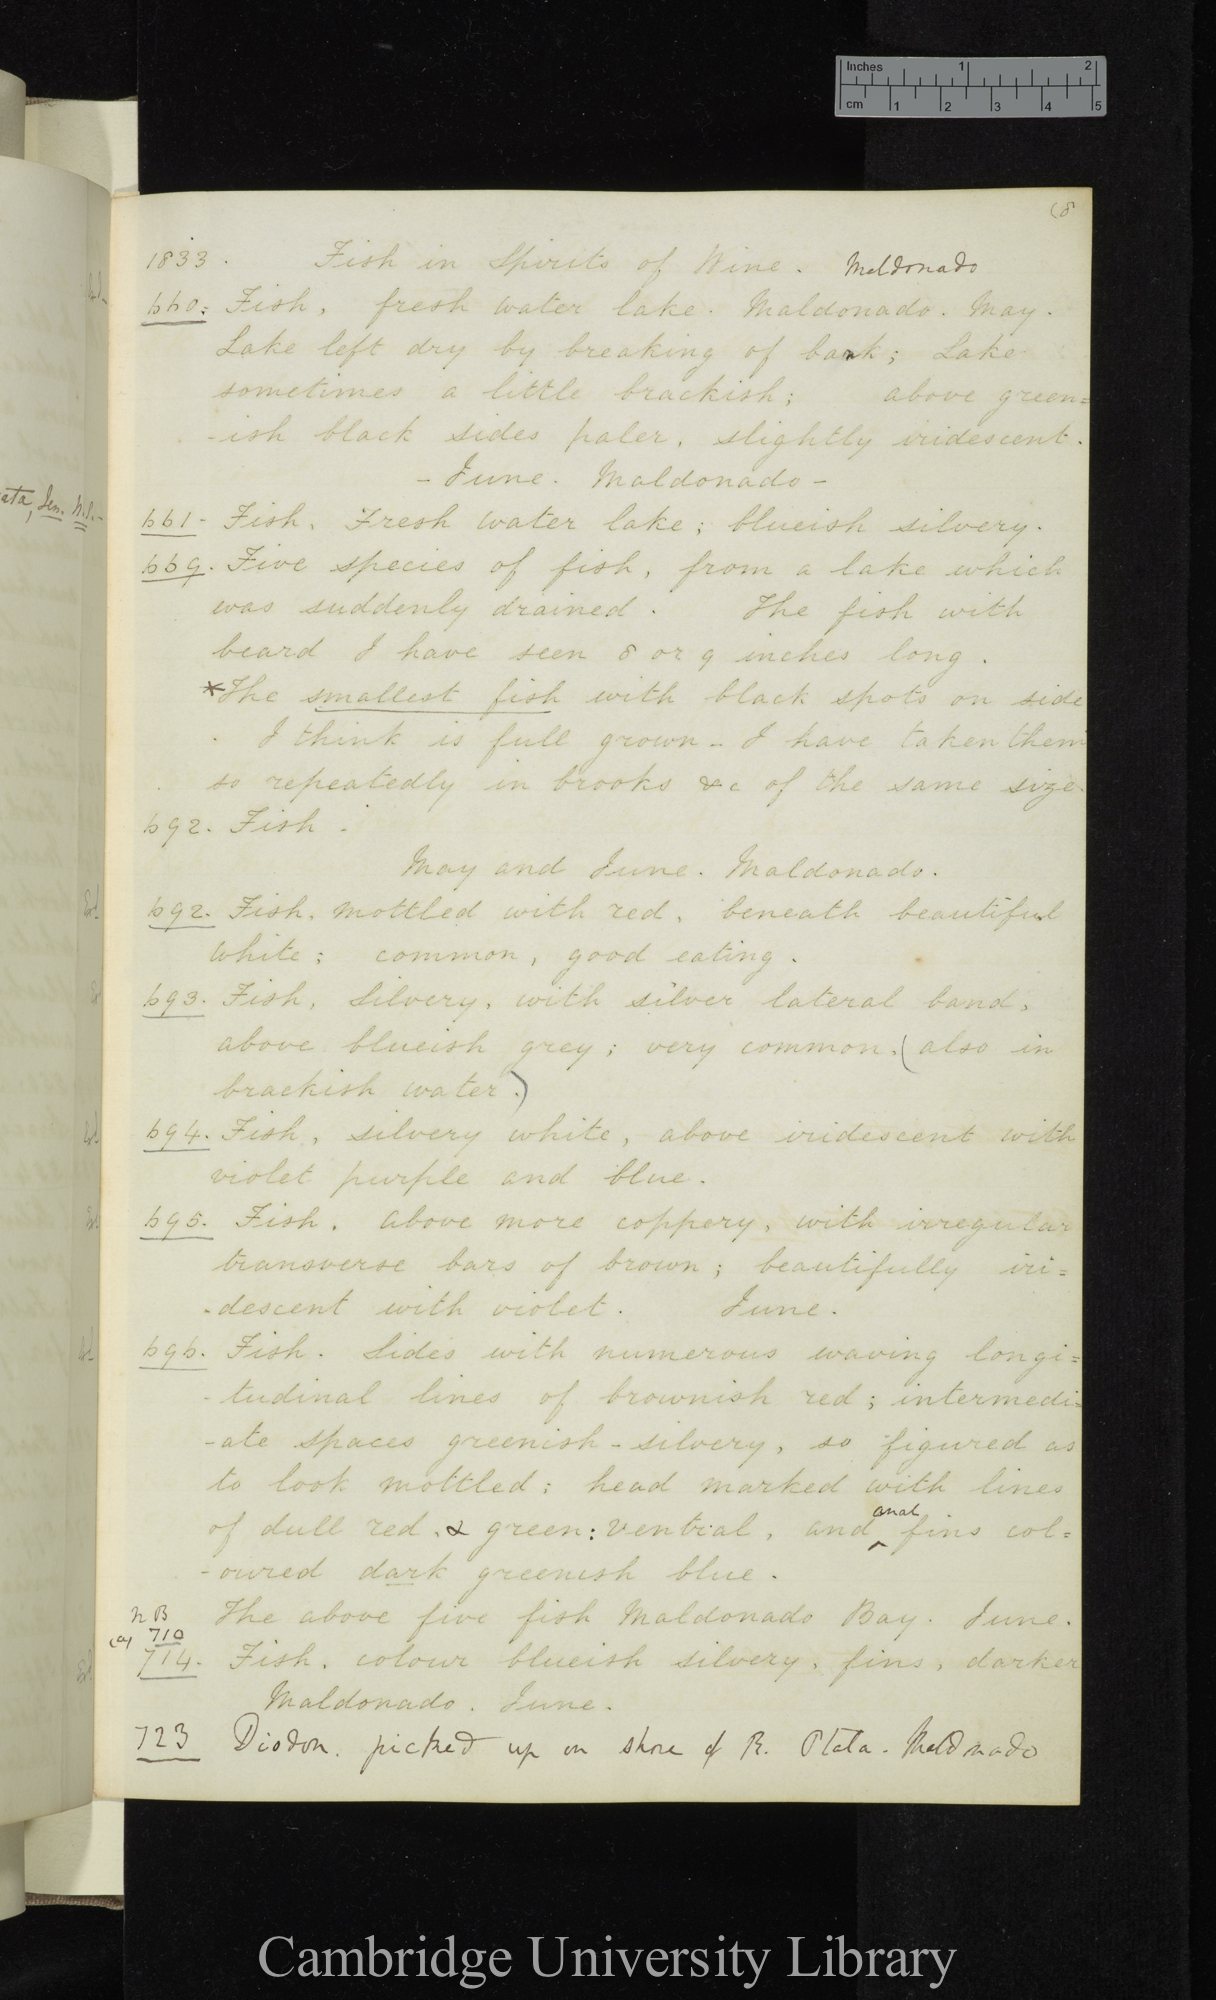 Inches 1 2
cm 1 2 3 4 5
1833. Fish in Spirits of Wine. Maldonado
660: Fish, fresh water lake. Maldonado. May.
Lake left dry by breaking of bank; Lake
sometimes a little brackish; above green=
-ish black sides paler, slightly iridescent.
- June. Maldonado -
661- Fish. Fresh water lake; blueish silvery.
669. Five species of fish, from a lake which
was suddenly drained. The fish with
beard I have seen 8 or 9 inches long.
*The smallest fish with black spots on side
I think is full grown - I have taken them
so repeatedly in brooks &c of the same size
692. Fish.
May and June. Maldonado.
692. Fish, mottled with red, beneath beautiful
white; common, good eating.
693. Fish, Silvery, with silver lateral band,
above blueish grey; very common, (also in
brackish water.)
694. Fish, silvery white, above iridescent with
violet purple and blue.
695. Fish. above more coppery, with irregular
transverse bars of brown; beautifully iri=
-descent with violet. June.
696. Fish. Sides with numerous waving longi=
-tudinal lines of brownish red; intermedi=
-ate spaces greenish-silvery, so figured as
to look mottled; head marked with lines
of dull red, & green: ventral, and ^anal fins col=
-oured dark greenish blue.
NB The above five fish Maldonado Bay. June.
(a) 710
714. Fish. colour blueish silvery, fins, darker
Maldonado. June.
723 Diodon. picked up on shore of R. Plata. Maldonado
Cambridge University Library